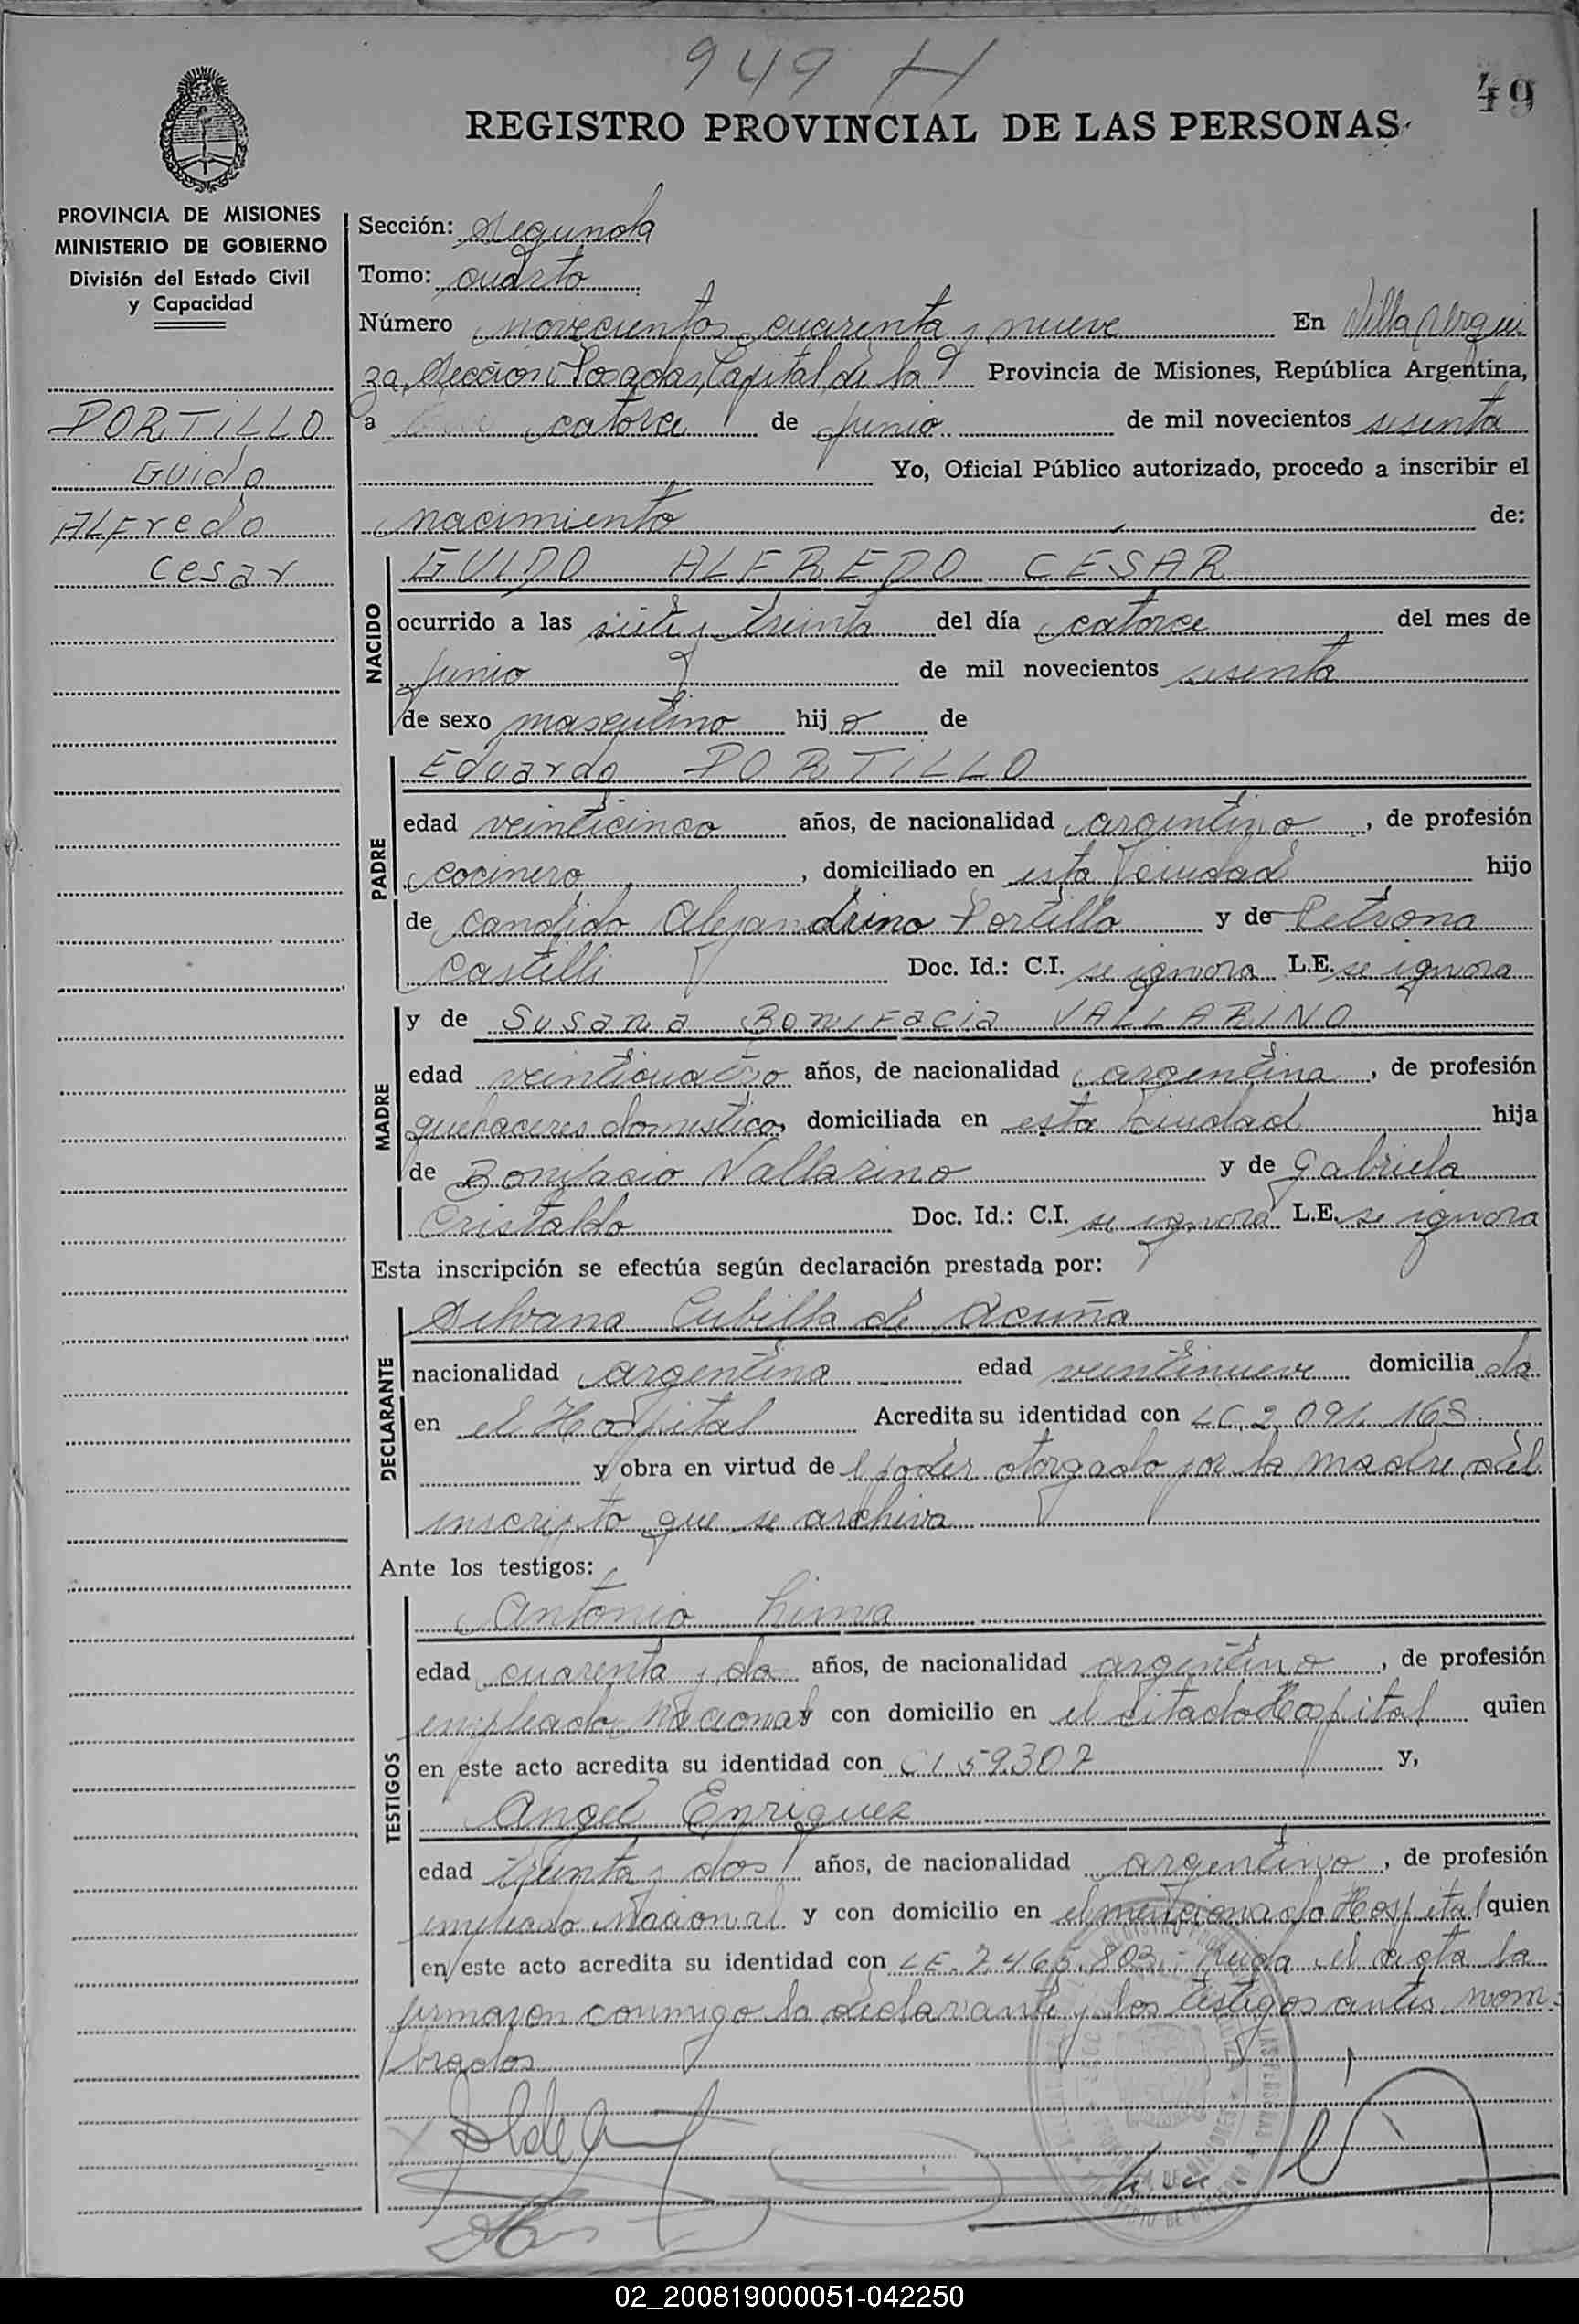 949 H
49
REGISTRO PROVINCIAL DE LAS PERSONAS
PROVINCIA DE MISIONES
MINISTERIO DE GOBIERNO
División del Estado Civil
y Capacidad
PORTILLO
Guido
ALFredo
Cesar
Sección: Segunda
Tomo: cuarto
Número novecientos cuarenta y nueve En Villa Urqui
za, Sección Posadas, Capital de la Provincia de Misiones, República Argentina,
a catorce de junio de mil novecientos sesenta
Yo, Oficial Público autorizado, procedo a inscribir el
nacimiento de:
NACIDO
GUIDO ALFREDO CESAR
ocurrido a las siete y treinta del día catorce del mes de
junio de mil novecientos sesenta
de sexo masculino hijo de
PADRE
Eduardo PORTILLO
edad veinticinco años, de nacionalidad argentino, de profesión
cocinero, domiciliado en esta Ciudad hijo
de Candido Alejandrino Portillo y de Petrona
Castelli Doc. Id.: C.I. se ignora L.E. se ignora
MADRE
y de Susana Bonifacia VALLARINO
edad veinticuatro años, de nacionalidad argentina, de profesión
quehaceres domesticos, domiciliada en esta Ciudad hija
de Bonifacio Vallarino y de Gabriela
Cristaldo Doc. Id.: C.I. se ignora L.E. se ignora
Esta inscripción se efectúa según declaración prestada por:
DECLARANTE
Silvana Cubilla de Acuña
nacionalidad argentina edad veintinueve domiciliada
en el Hospital Acredita su identidad con LC. 2.091.168
y obra en virtud del poder otorgado por la madre del
inscripto que se archiva
Ante los testigos:
TESTIGOS
Antonio
edad cuarenta y do años, de nacionalidad argentino, de profesión
empleado Nacional y con domicilio en el citado Hospital quien
en este acto acredita su identidad con CI 59307 y,
Angel Enriquez
edad treinta y dos años, de nacionalidad argentino, de profesión
empleado Nacional y con domicilio en el mencionado Hospital quien
en este acto acredita su identidad con LE. 2.465.803.- Leida el acta la
firmaron conmigo la declarante y los testigos antes nom-
brados
02_200819000051-042250